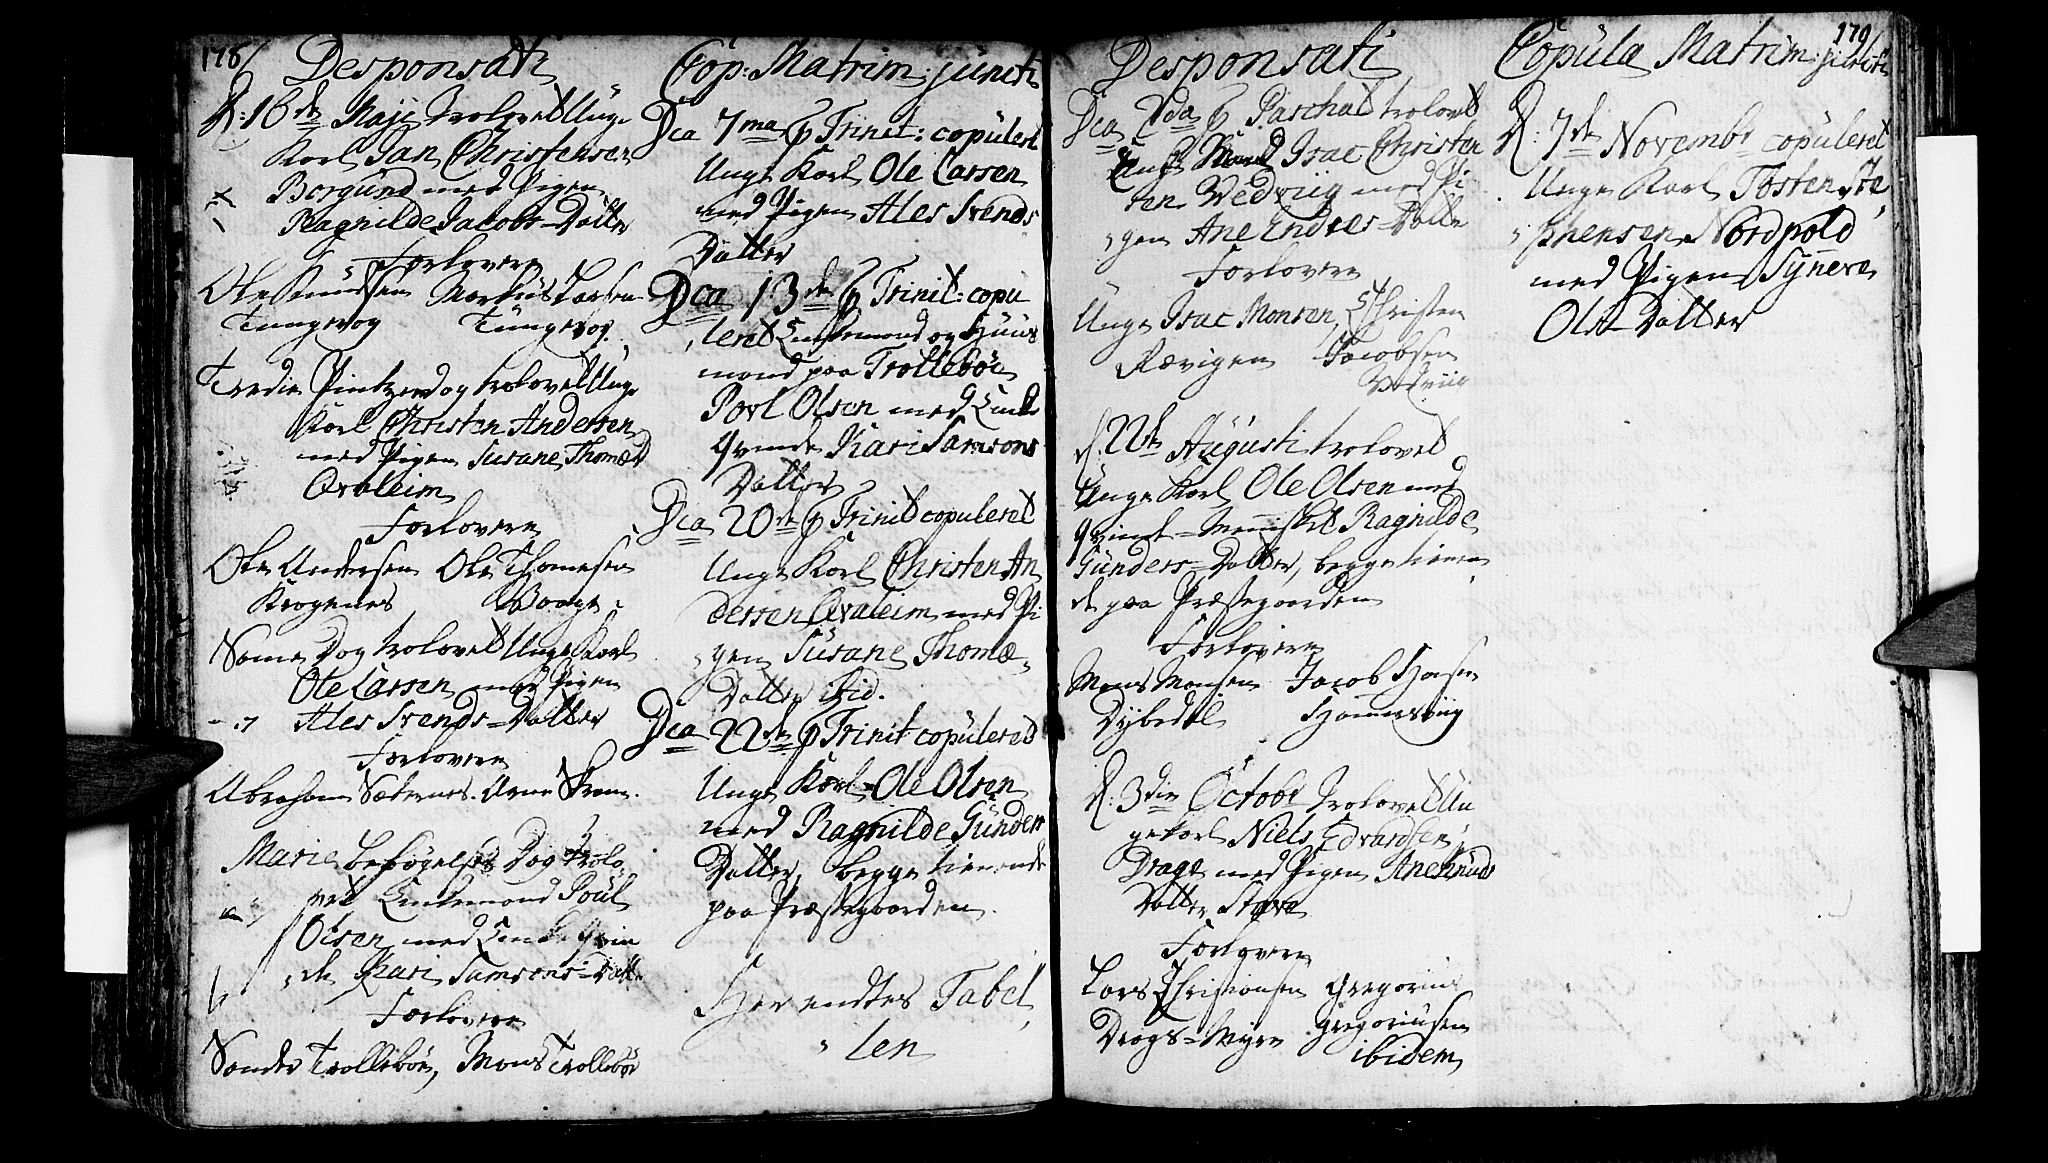 178
Desponsati
d: 16de Maji trolovet Unge
Karl Jan Christensen
Borgund med Pigen
Ragnilde Jacobs-Datter
Forlovere
Ole Knudsen Markus Larsen
Tungevog Tungevog.
Tredie Pintzedag trolovet Unge
Karl Christen Andersen
med Pigen Susane Thomæd
Qvaleim
Forlovere
Ole Andersen Ole Thomesen
Krogenes Vaage
Same Dag trolovet Unge Karl
Ole Larsen med Pigen
Ales Svends-Datter
Forlovere
Abraham Sæternes. Arne
Mariæ besøgelses Dag trolo
vet Enkemand Poul
Olsen med Enke Qvin
de Kari Samsons-Datter
Forlovere
Sander Trollebøe, Mons Trollebøe
Cop: Matrim: juncti
Dca 7ma p Trinit: copuleret
Unge Karl Ole Larsen
med Pigen Ales Svends
Datter
Dca 13de p Trinit: copu
leret Enkemand og Huus
mand paa Trollebøe
Povl Olsen med Enke
qvinde Kari Samsons
Datter
Dca 20de p Trinit copuleret
Unge Karl Christen An
dersen Qvaleim med Pi
gen Susane Thomæ
Datter ibid.
Dca 22de p Trinit copuleret
Unge Karl Ole Olsen
med Ragnilde Gunders
Datter, begge tienende
paa Præstegaarden.
Her endtes Tabel
len
179
Desponsati
Dca 2da p Paschat trolovet
Isac Christen
sen Vedviig med Pi
gen Ane Endres-Datte
Forlovere
Unge Isac Monsen, Christen
Rævigen Jacobsen
Vedviig
d: 22de Augusti trolovet
Unge Karl Ole Olsen med
qvinde-Mennisket Ragnilde
Gunders-Datter, begge tienen
de paa Præstegaarden
Forlovere
Mons Monsen Jacob Hansen
Dybedal Hamersviig
d: 3die Octobr trolovet Un
ge Karl Niels Edvardsen
Drage med Pigen Ane Knuds
Datter Stave
Forlovere
Lars Christiansen Gregorius
Drags-Myre Gregoriusen
ibidem
Copula Matrim: juncti
d: 7de Novembr copuleret
Unge Karl Tosten Ste
phensen Nordpold
med Pigen Syneve
Ols-Datter